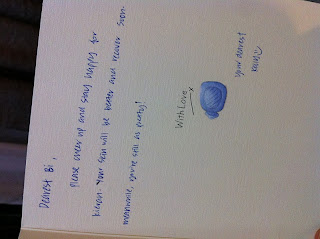 Dearest Bi,
Please cheer up and stay happy for
. Your skin will be better and recover soon.
meanwhile, you're still as pretty!
With Love
Your dearest